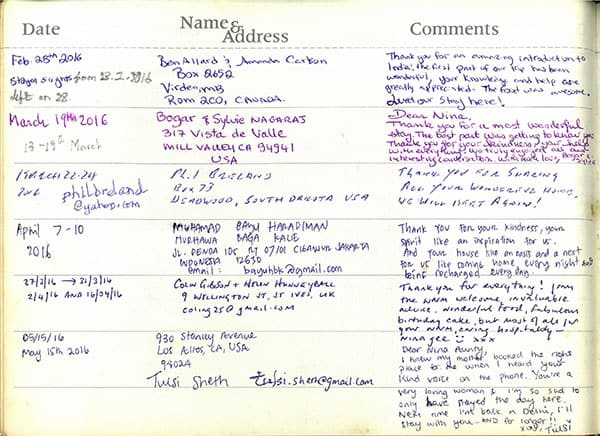 Date
Name & Address
Comments
Feb. 28th 2016
Ben Allard & Amanda Carlson
Box 2652
Virden, MB
ROM 2C0, CANADA.
Thank you for an amazing introduction to
India, the first part of our trip has been
wonderful, your knowledge and help are
greatly appreciated. The food was awesome.
our stay here!
March 19th 2016
13 - 19th March
Bogar & Sylvie NAGARAJ
317 Vista de Valle
MILL VALLEY CA 94941
USA
Dear Nina,
Thank you for a most wonderful
stay. The best part was getting to know you
Thank you for your kindness, your help
with everything. We truly enjoyed all our
interesting conversation.
March 22-24
2016
philbreland
@yahoo.com
BRELAND
Box 73
DEADWOOD, SOUTH DAKOTA USA
THANK YOU FOR SHARING
ALL YOUR WONDERFUL HOME.
WE WILL MEET AGAIN!
April 7-10
2016
MUHAMAD BAYU HARADIMAN
JL. BENDA RT 07/01 CIGANJUR JAKARTA
INDONESIA 12630
email: bayuhbk@gmail.com
Thank you for your kindness, your
spirit like an inspiration for us.
And your house like an oasis and a nest
for us like coming home, every night and
being recharged every day.
27/3/16 → 31/3/16
2/4/16 AND 16/04/16
COLIN GIBSON + HELEN HUNNEYBALL
9 WELLINGTON ST, ST IVES, UK
coling25@gmail.com
Thank you for everything! from
the warm welcome, invaluable
advice, wonderful food, fabulous
birthday cake, but most of all for
your warm, caring hospitality -
Nina jee xxx
05/15/16
May 15th 2016
930 Stanley Avenue
Los Altos, CA, USA
94024
Tulsi Sheth
Dear Nina Aunty,
I knew my mother booked the right
place to me when I heard your
kind voice on the phone. You're a
very loving woman & I'm so sad to
only have stayed the day here.
Next time I'm back in Delhi, I'll
stay with you... AND for longer!!
xox, Tulsi